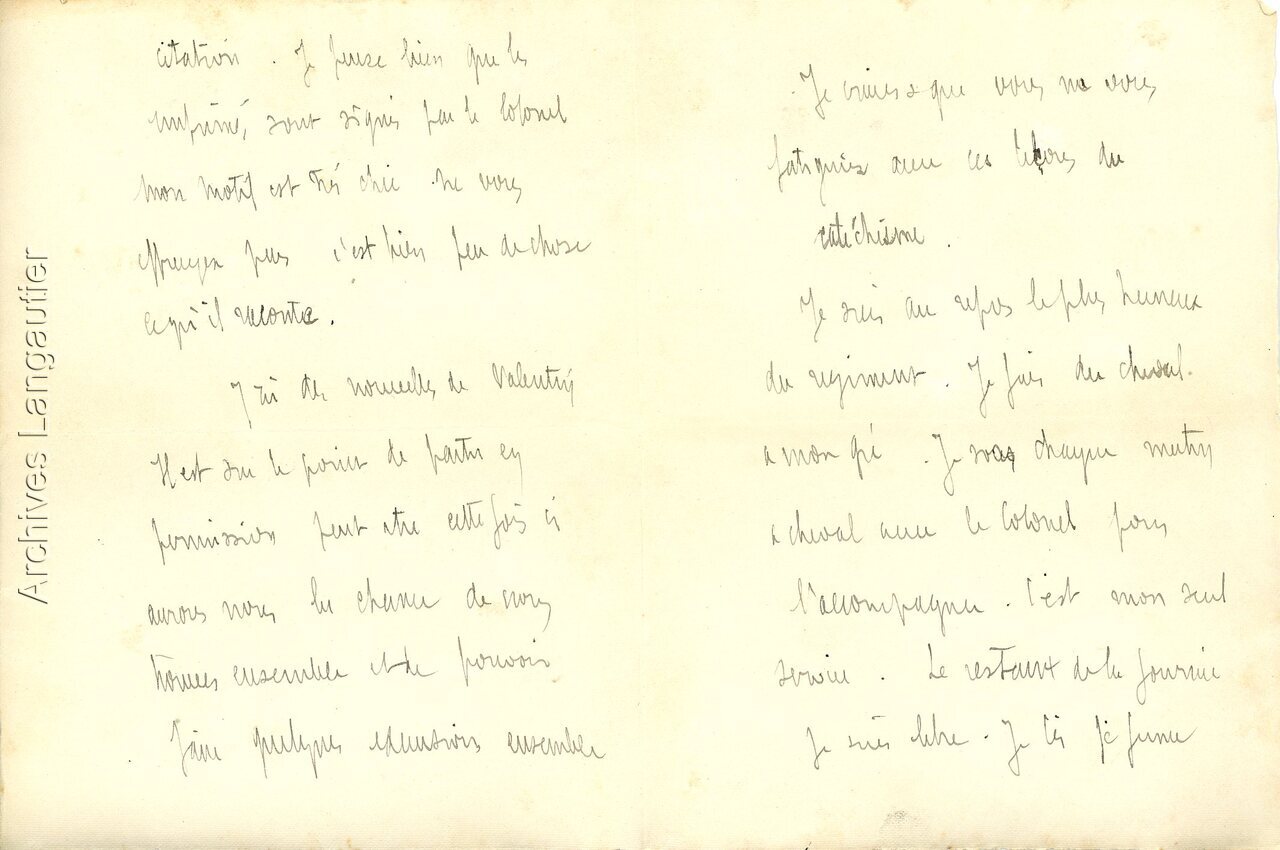 citation. Je pense bien que les
imprimés, sont signés par le Colonel
mon motif est très chic ne vous
effrayez pas c'est bien peu de chose
ce qu'il raconte.
J'ai des nouvelles de Valentin
Il est sur le point de partir en
permission peut etre cette fois ci
aurons nous la chance de nous
trouver ensemble et de pouvoir
faire quelques excursions ensemble
Je crains que vous ne vous
fatiguiez avec ces leçons du
catéchisme.
Je suis au repos le plus heureux
du régiment. Je fais du cheval
a mon gré. Je vais chaque matin
a cheval avec le Colonel pour
l'accompagner. C'est mon seul
service. Le restant de la journée
Je suis libre. Je lis je fume
Archives Langautier